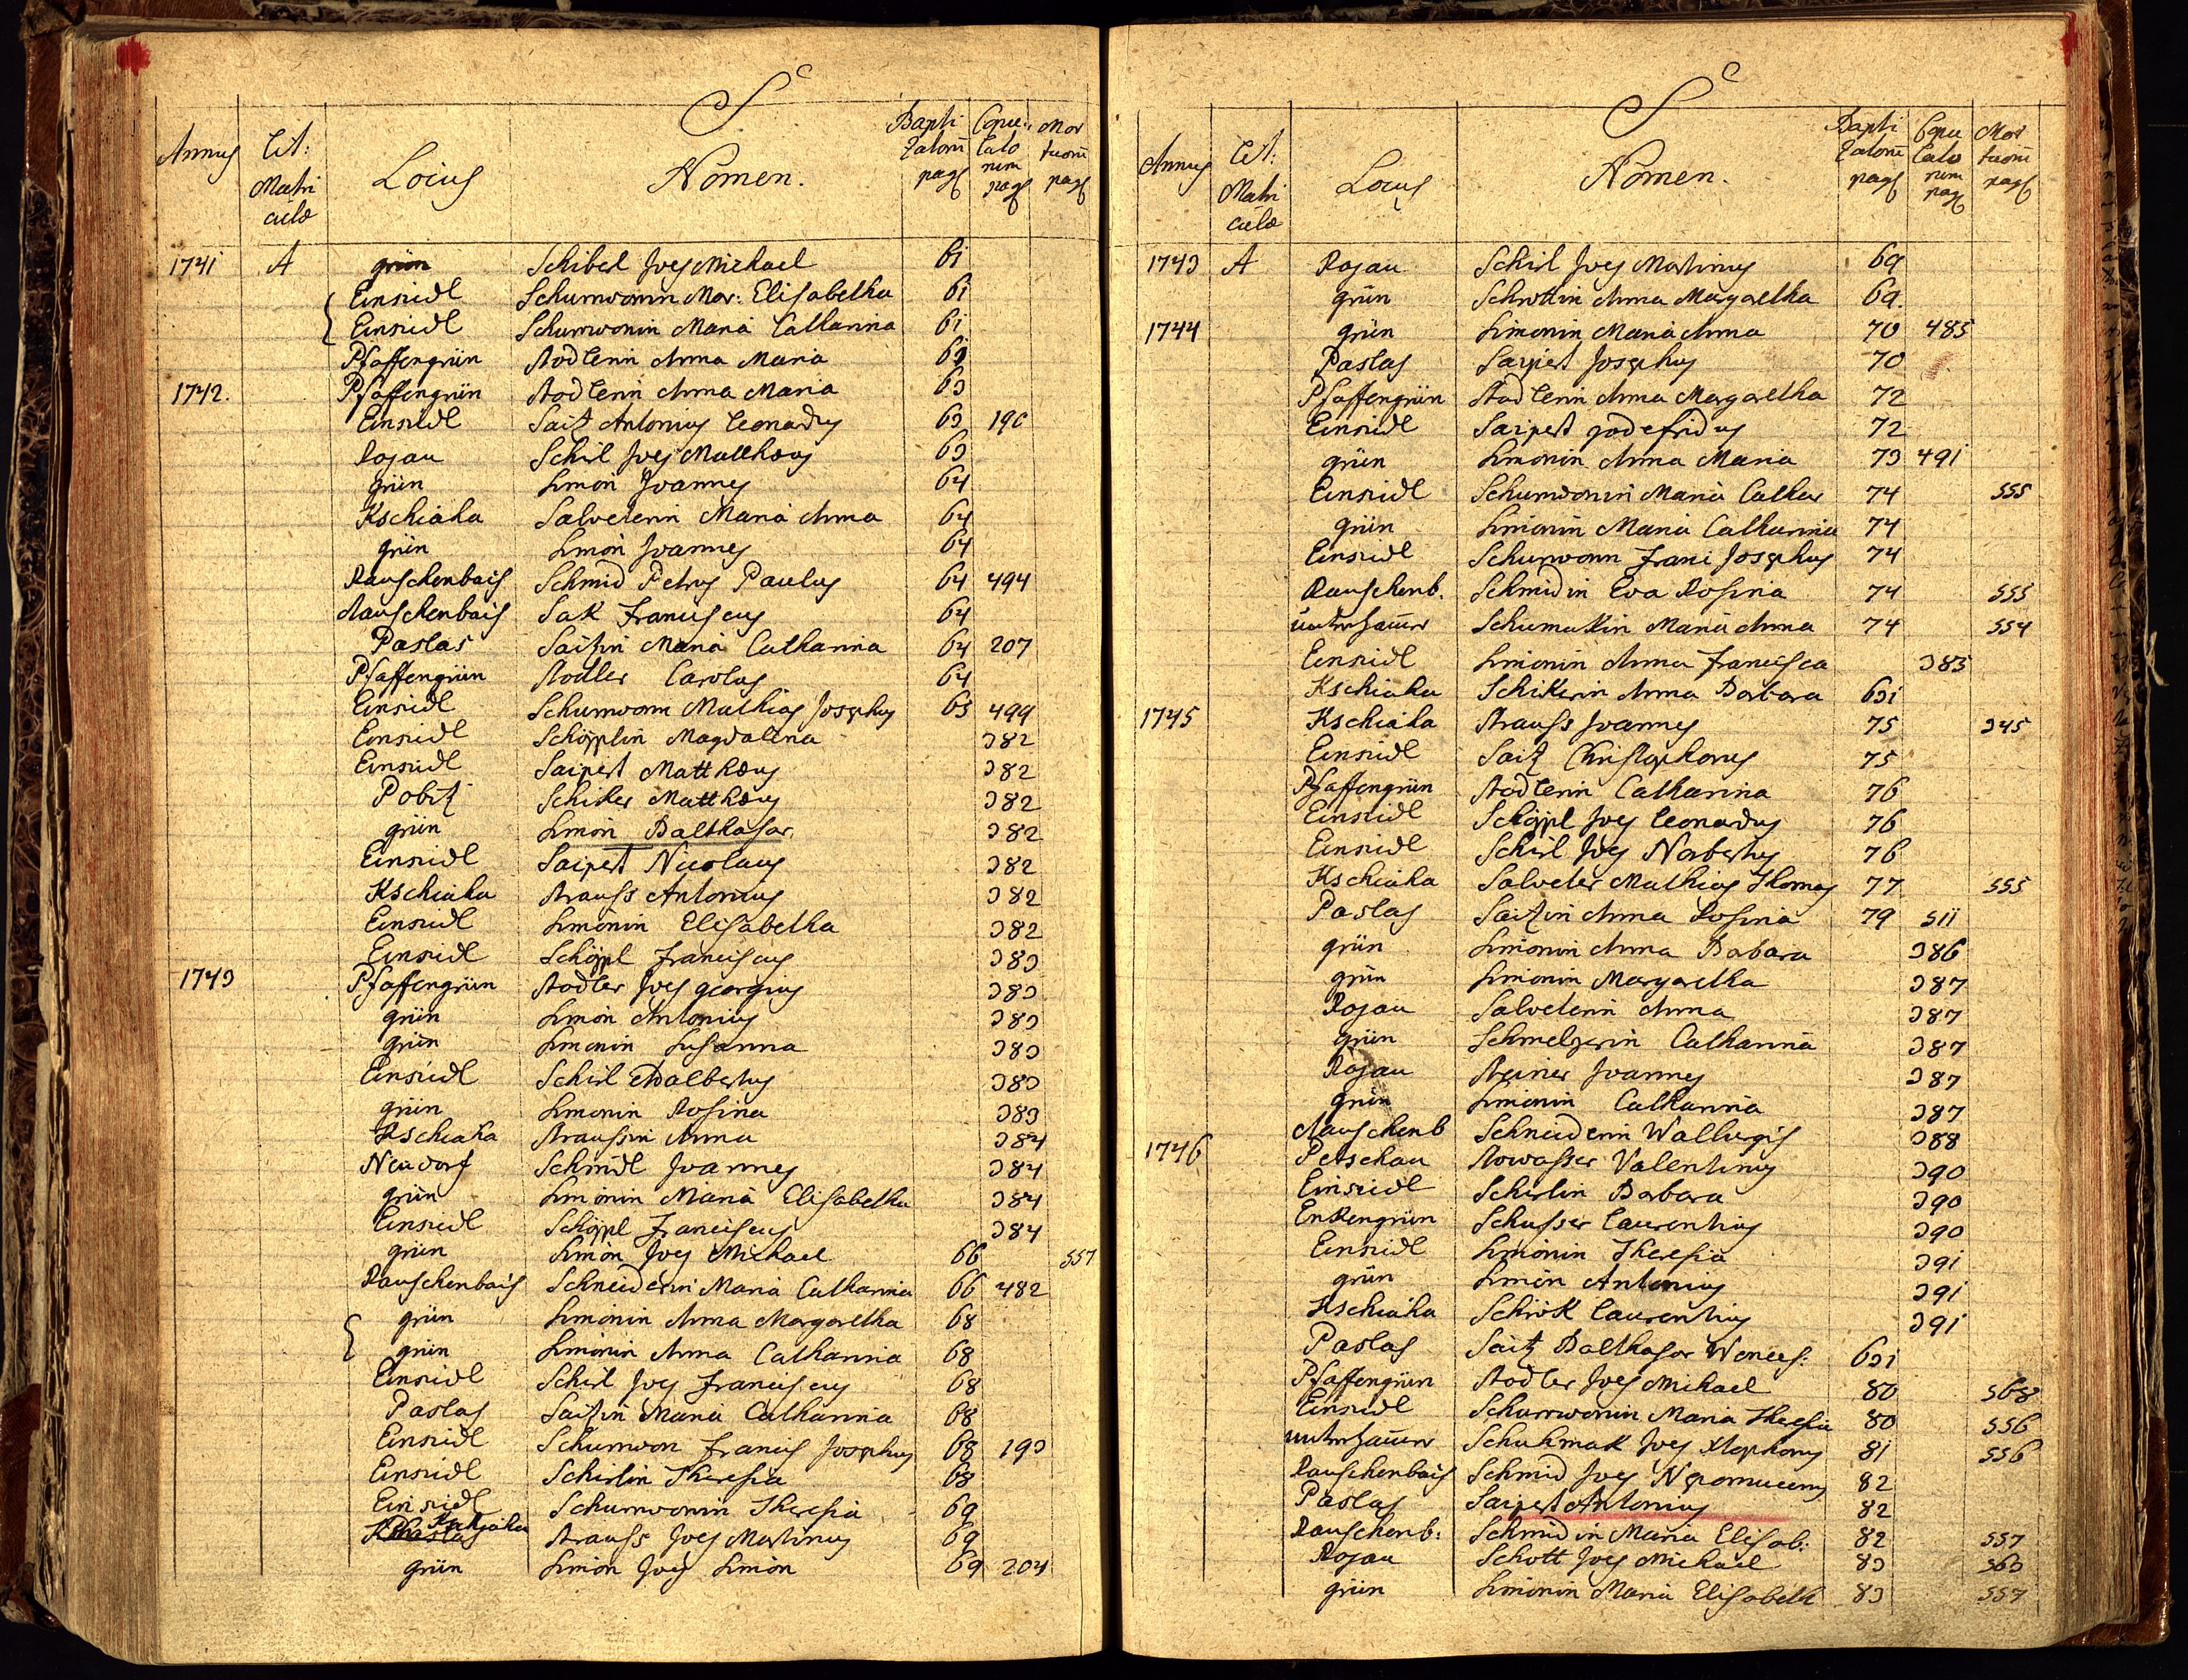 S
Annus Lit: Matri culæ Locus Nomen. Bapti zatorū pag Copu lato rum pag Mor tuorū pag
1741 A grün Schibel Joes Michael 61
Einsidl Schurwonin Mar: Elisabetha 61
Einsidl Schurwonin Maria Catharina 61
Pfaffengrün Stodlerin Anna Maria
1742. Pfaffengrün Stodlerin Anna Maria 63
Einsidl Saitz Antonius Leonardus 63 196
Rojau Schirl Joes Matthæus 63
grün Simon Joannes 64
Kschiaha Salveterin Maria Anna 64
grün Simon Joannes 64
Rauschenbais Schmid Petrus Paulus 64 494
Rauschenbais Sak Franciscus 64
Paslas Saitzin Maria Catharina 64 207
Pfaffengrün Stodler Carolus 64
Einsidl Schurwonn Mathias Josephus 65 499
Einsidl Schöpplin Magdalena 382
Einsidl Saipert Matthæus 382
Pobitz Schiker Matthæus 382
grün Simon Balthasar 382
Einsidl Saipert Nicolaus 382
Kschiaha Strauss Antonius 382
Einsidl Simonin Elisabetha 382
Einsidl Schöppl Franciscus 383
1743 Pfaffengrün Stodler Joes georgius 383
grün Simon Antonius 383
grün Simonin Susanna 383
Einsidl Schirl Adalbertus 383
grün Simonin Rosina 383
Kschiaha Straussin Anna 384
Neudorf Schmidl Joannes 384
grün Simonin Maria Elisabetha 384
Einsidl Schöppl Franciscus 384
grün Simon Joes Michael 66 557
Rauschenbais Schneiderin Maria Catharina 66 482
grün Simonin Anna Margaretha 68
grün Simonin Anna Catharina 68
Einsidl Schirl Joes Franciscus 68
Paslas Saitzin Maria Catharina 68
Einsidl Schurwon Francis Josephus 68 193
Einsidl Schirlin Theresia 68
Einsidl Schurwonin Theresia 69
Kschiaha Strauss Joes Martinus 69
grün Simon Joes Simon 69 204
S
Annus Lit: Matri culæ Locus Nomen. Bapti zatorū pag Copu lato rum pag Mor tuorū pag
1743 A Rojau Schirl Joes Martinus 69
grün Schrottin Anna Margaretha 69.
1744 grün Simonin Maria Anna 70 485
Paslas Saipert Josephus 70
Pfaffengrün Stodlerin Anna Margaretha 72
Einsidl Saipert godefridus 72
grün Simonin Anna Maria 73 491
Einsidl Schurwonin Maria Cathar 74 555
grün Simonin Maria Catharina 74
Einsidl Schurwonn Franc Josephus 74
Rauschenb. Schmidin Eva Rosina 74 555
Schumakin Maria Anna 74 554
Einsidl Simonin Anna Francisca 385
Kschiaha Schikerin Anna Barbara 631
1745 Kschiaha Strauss Joannes 75 345
Einsidl Saitz Christophorus 75
Pfaffengrün Stodlerin Catharina 76
Einsidl Schöppl Joes Leonardus 76
Einsidl Schirl Joes Norbertus 76
Kschiaha Salveter Mathias Thomas 77 555
Paslas Saitzin Anna Rosina 79 511
grün Simonin Anna Barbara 386
grün Simonin Margaretha 387
Rojau Salveterin Anna 387
grün Schmelzerin Catharina 387
Rojau Steiner Joannes 387
grün Simonin Catharina 387
Rauschenb Schneiderin Walburgis 388
1746 Petschau Stowasser Valentinus 390
Einsidl Schirlin Barbara 390
Enkengrün Schusser Laurentius 390
Einsidl Simonin Theresia 391
grün Simon Antonius 391
Kschiaha Schrök Laurentius 391
Paslas Saitz Balthasar Wences: 631
Pfaffengrün Stodler Joes Michael 80 568
Einsidl Schurrwonin Maria Theresia 80 556
Schuhmak Joes Stephanus 81 556
Rauschenbais Schmid Joes Nepomucenus 82
Paslas Saipert Antonius 82
Rauschenb: Schmidin Maria Elisab: 82 557
Rojau Schott Joes Michael 83 563
grün Simonin Maria Elisabeth 83 557